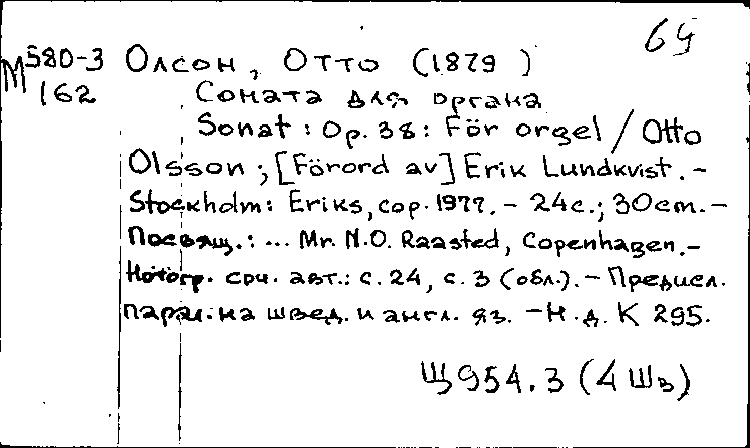 69
М 580-3 Олсон, Отто (1879 )
162 Соната для органа
Sonat : Op. 38 : För orgel / Otto
Olsson ; [Förord av] Erik Lundkvist. –
Stockholm : Eriks, cop. 1977. – 24 с.; 30 cm. –
Посвящ.: ... Mr. N.O. Raasted, Copenhagen. –
Нотогр. соч. авт.: с. 24, с. 3 (обл.). – Предисл.
парал. на швед. и англ. яз. – Н.д. К 295.
Щ954.3 (4 Шв)